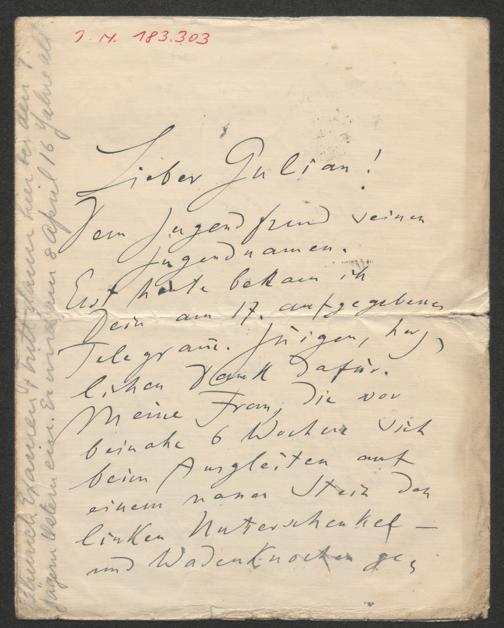 J. N. 183.303
Lieber Julian!
Dem Jugendfreund seinen
Jugendnamen.
Erst heute bekam ich
Dein am 17. aufgegebenes
Telegram. Innigen, herz,
lichen Dank dafür.
Meine Frau, die vor
beinahe 6 Wochen sich
beim Ausgleiten auf
einem nassen Stein den
linken Unterschenkel –
und Wadenknochen ge,
Examen & tritt dann hier bei den
Jägern Ostern ein. Er wird am 8 April 16 Jahre alt